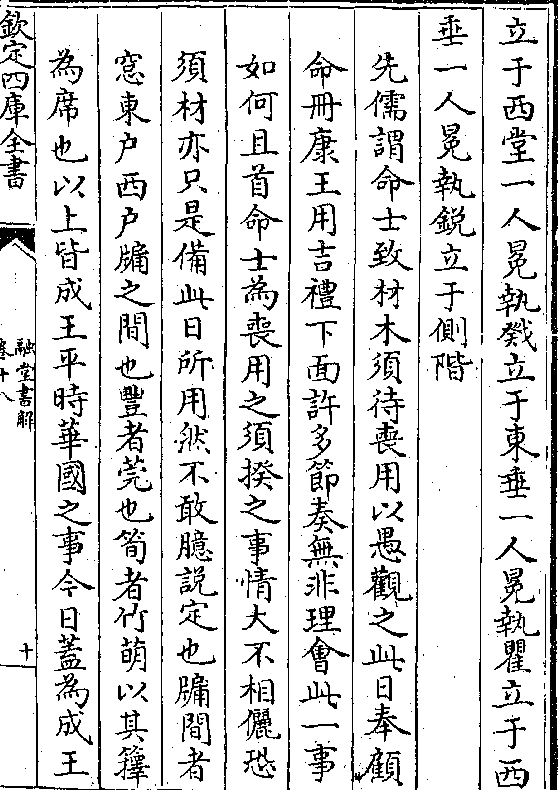 立于西堂一人冕執戣立于東垂一人冕執瞿立于西
垂一人冕執鋭立于側階
先儒謂命士致材木須待喪用以愚觀之此日奉顧
命冊康王用吉禮下面許多節奏無非理會此一事
如何且首命士為喪用之須揆之事情大不相儷恐
須材亦只是備此日所用然不敢臆説定也牖間者
窓東户西户牖之間也豐者莞也筍者竹萌以其籜
為席也以上皆成王平時華國之事今日蓋為成王
欽定四庫全書
融堂書解
卷十八
十